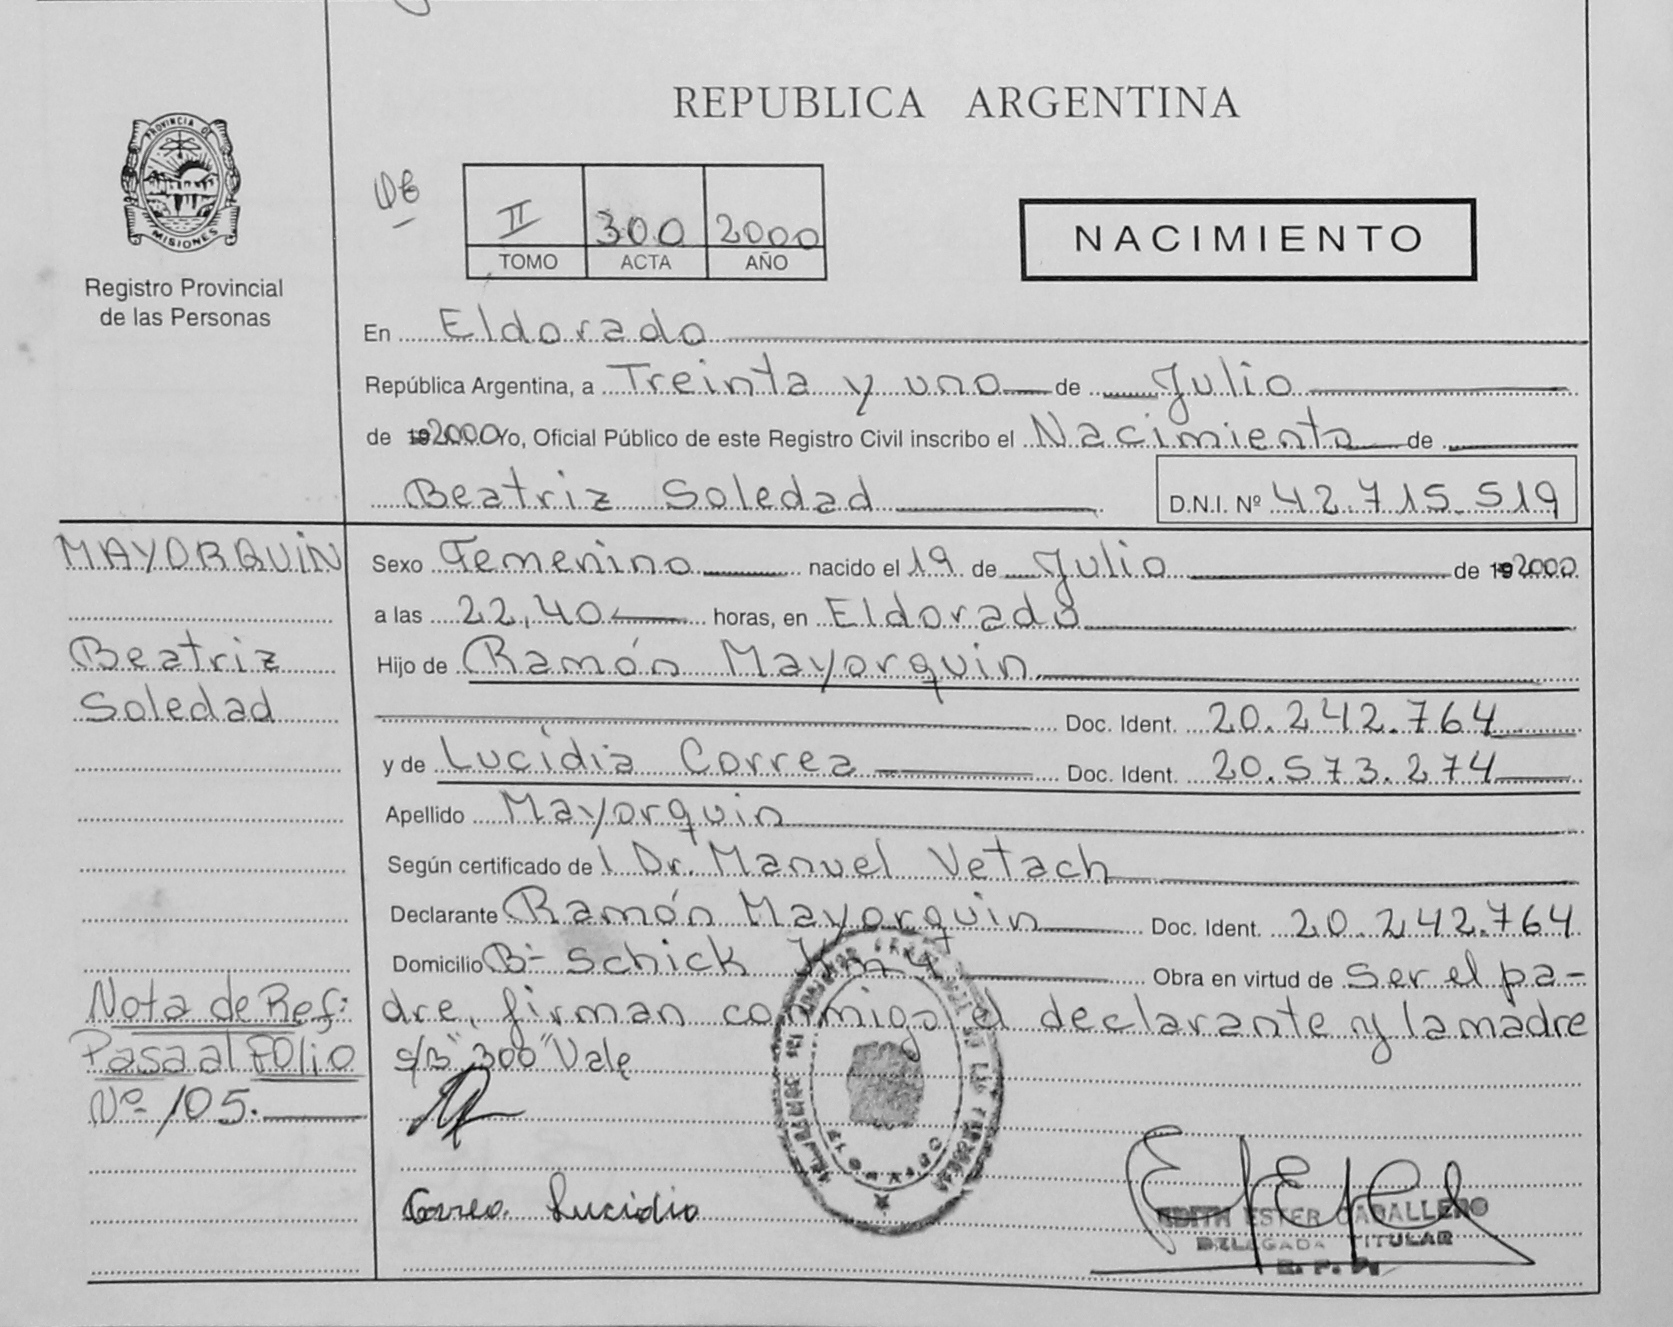 REPUBLICA ARGENTINA
PROVINCIA DE
MISIONES
Registro Provincial
de las Personas
II 300 2000
TOMO ACTA AÑO
NACIMIENTO
En Eldorado
República Argentina, a Treinta y uno de Julio
de 2000 Yo, Oficial Público de este Registro Civil inscribo el Nacimiento de
Beatriz Soledad D.N.I. Nº 42.715.519
MAYORQUIN
Beatriz
Soledad
Sexo Femenino nacido el 19 de Julio de 192000
a las 22,40 horas, en Eldorado
Hijo de Ramón Mayorquin
Doc. Ident. 20.242.764
y de Lucídia Correa Doc. Ident. 20.573.274
Apellido Mayorquin
Según certificado del Dr. Manuel Vetach
Declarante Ramón Mayorquin Doc. Ident. 20.242.764
Domicilio Bº Schick Km 4 Obra en virtud de Ser el pa-
dre, firman conmigo el declarante y la madre
s/B "300" Vale
Nota de Ref:
Pasa al FOlio
Nº 105.
Correa Lucidia
EDITH ESTER CABALLERO
DELEGADA TITULAR
R. P. P.
ELDORADO